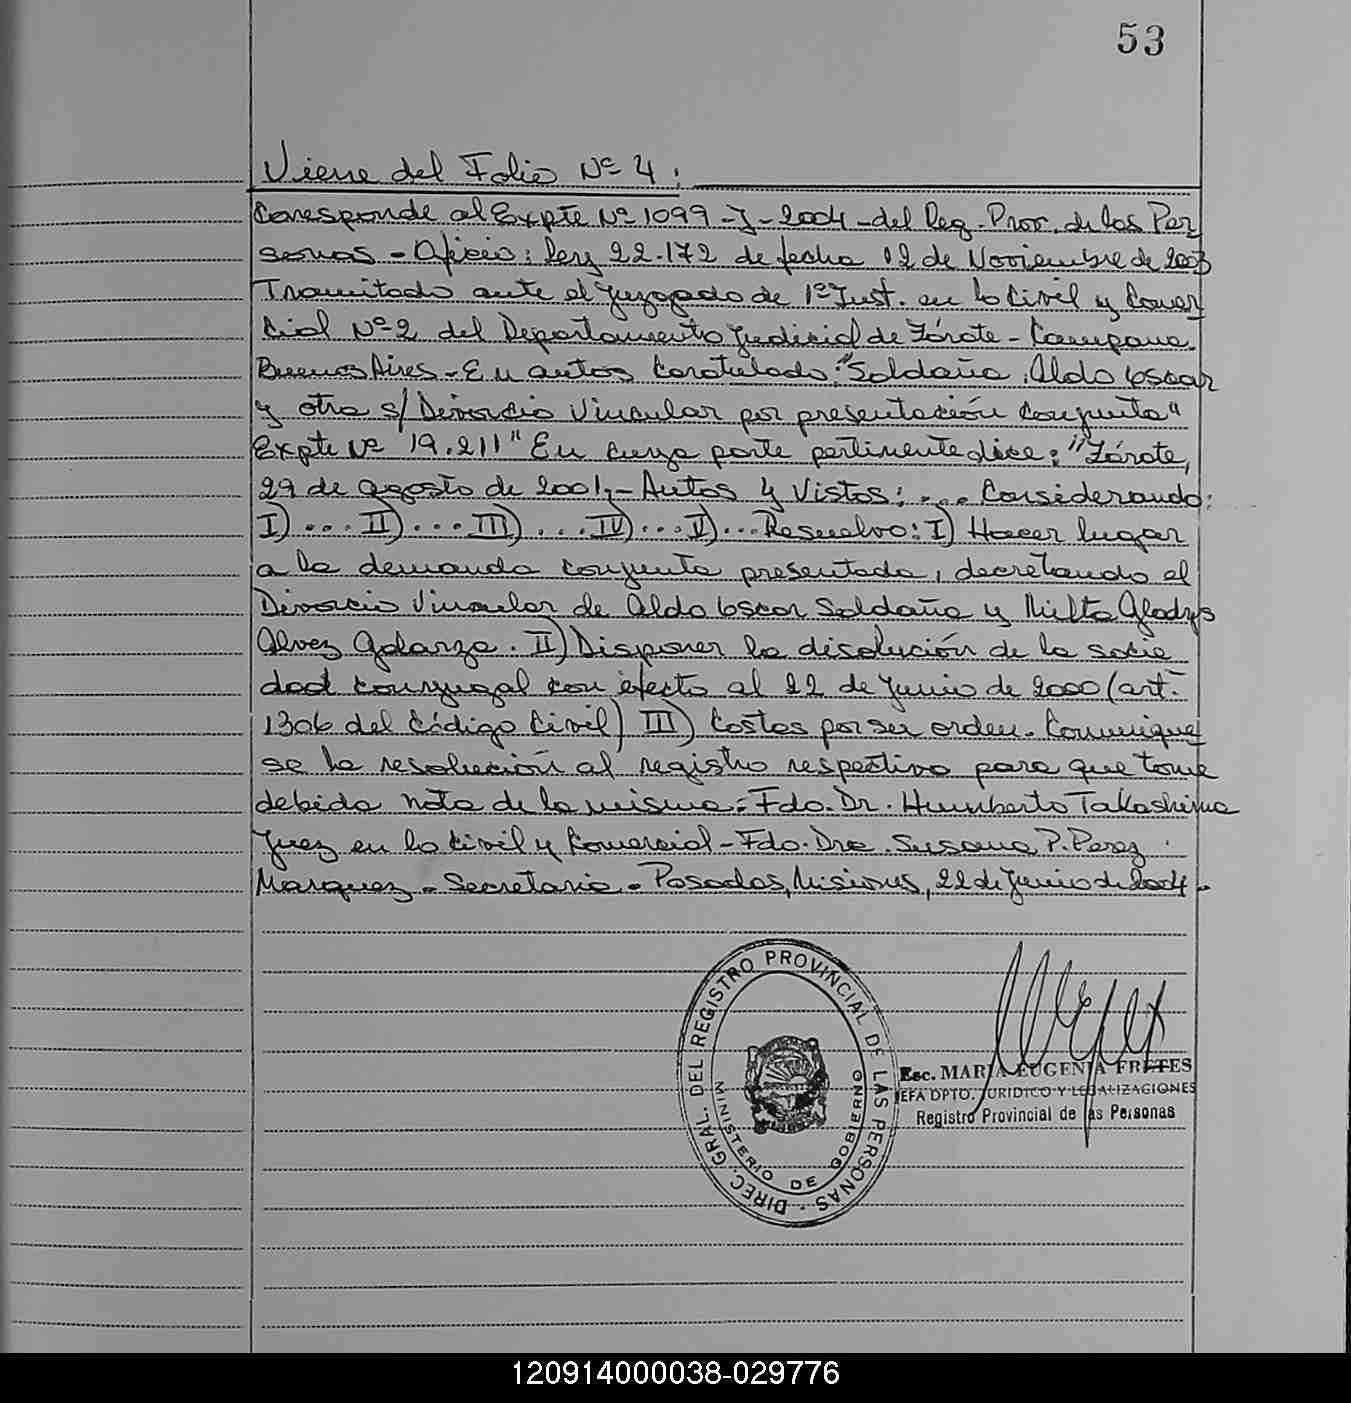 53
Viene del Folio Nº 4:
Corresponde al Expte Nº 1099-J-2004-del Reg. Prov. de las Per
sonas - Oficio: Ley 22.172 de fecha 12 de Noviembre de 2003
Tramitado ante el Juzgado de 1º Inst. en lo Civil y Comer
cial Nº 2 del Departamento Judicial de Zárate - Campana.
Buenos Aires - En autos Caratulado: "Saldaña, Aldo Oscar
y otra s/ Divorcio Vincular por presentación Conjunta"
Expte Nº 19.211" En cuya parte pertinente dice: "Zárate,
29 de agosto de 2001,- Autos y Vistos: ... Considerando:
I) ... II) ... III) ... IV) ... V) ... Resuelvo: I) Hacer lugar
a la demanda conjunta presentada, decretando el
Divorcio Vincular de Aldo Oscar Saldaña y Milta Gladys
Alvez Galarza. II) Disponer la disolución de la socie
dad conyugal con efecto al 22 de Junio de 2000 (art.
1306 del Código Civil) III) Costas por su orden. Comuníque
se la resolución al registro respectivo para que tome
debida nota de la misma. Fdo. Dr. Humberto Takashima
Juez en lo Civil y Comercial - Fdo. Dra. Susana P. Perez
Marquez - Secretaria - Posadas, Misiones, 22 de Junio de 2004 -
DIREC. GRAL. DEL REGISTRO PROVINCIAL DE LAS PERSONAS -
MINISTERIO DE GOBIERNO
Esc. MARIA EUGENIA FRETES
JEFA DPTO. JURIDICO Y LEGALIZACIONES
Registro Provincial de las Personas
120914000038-029776